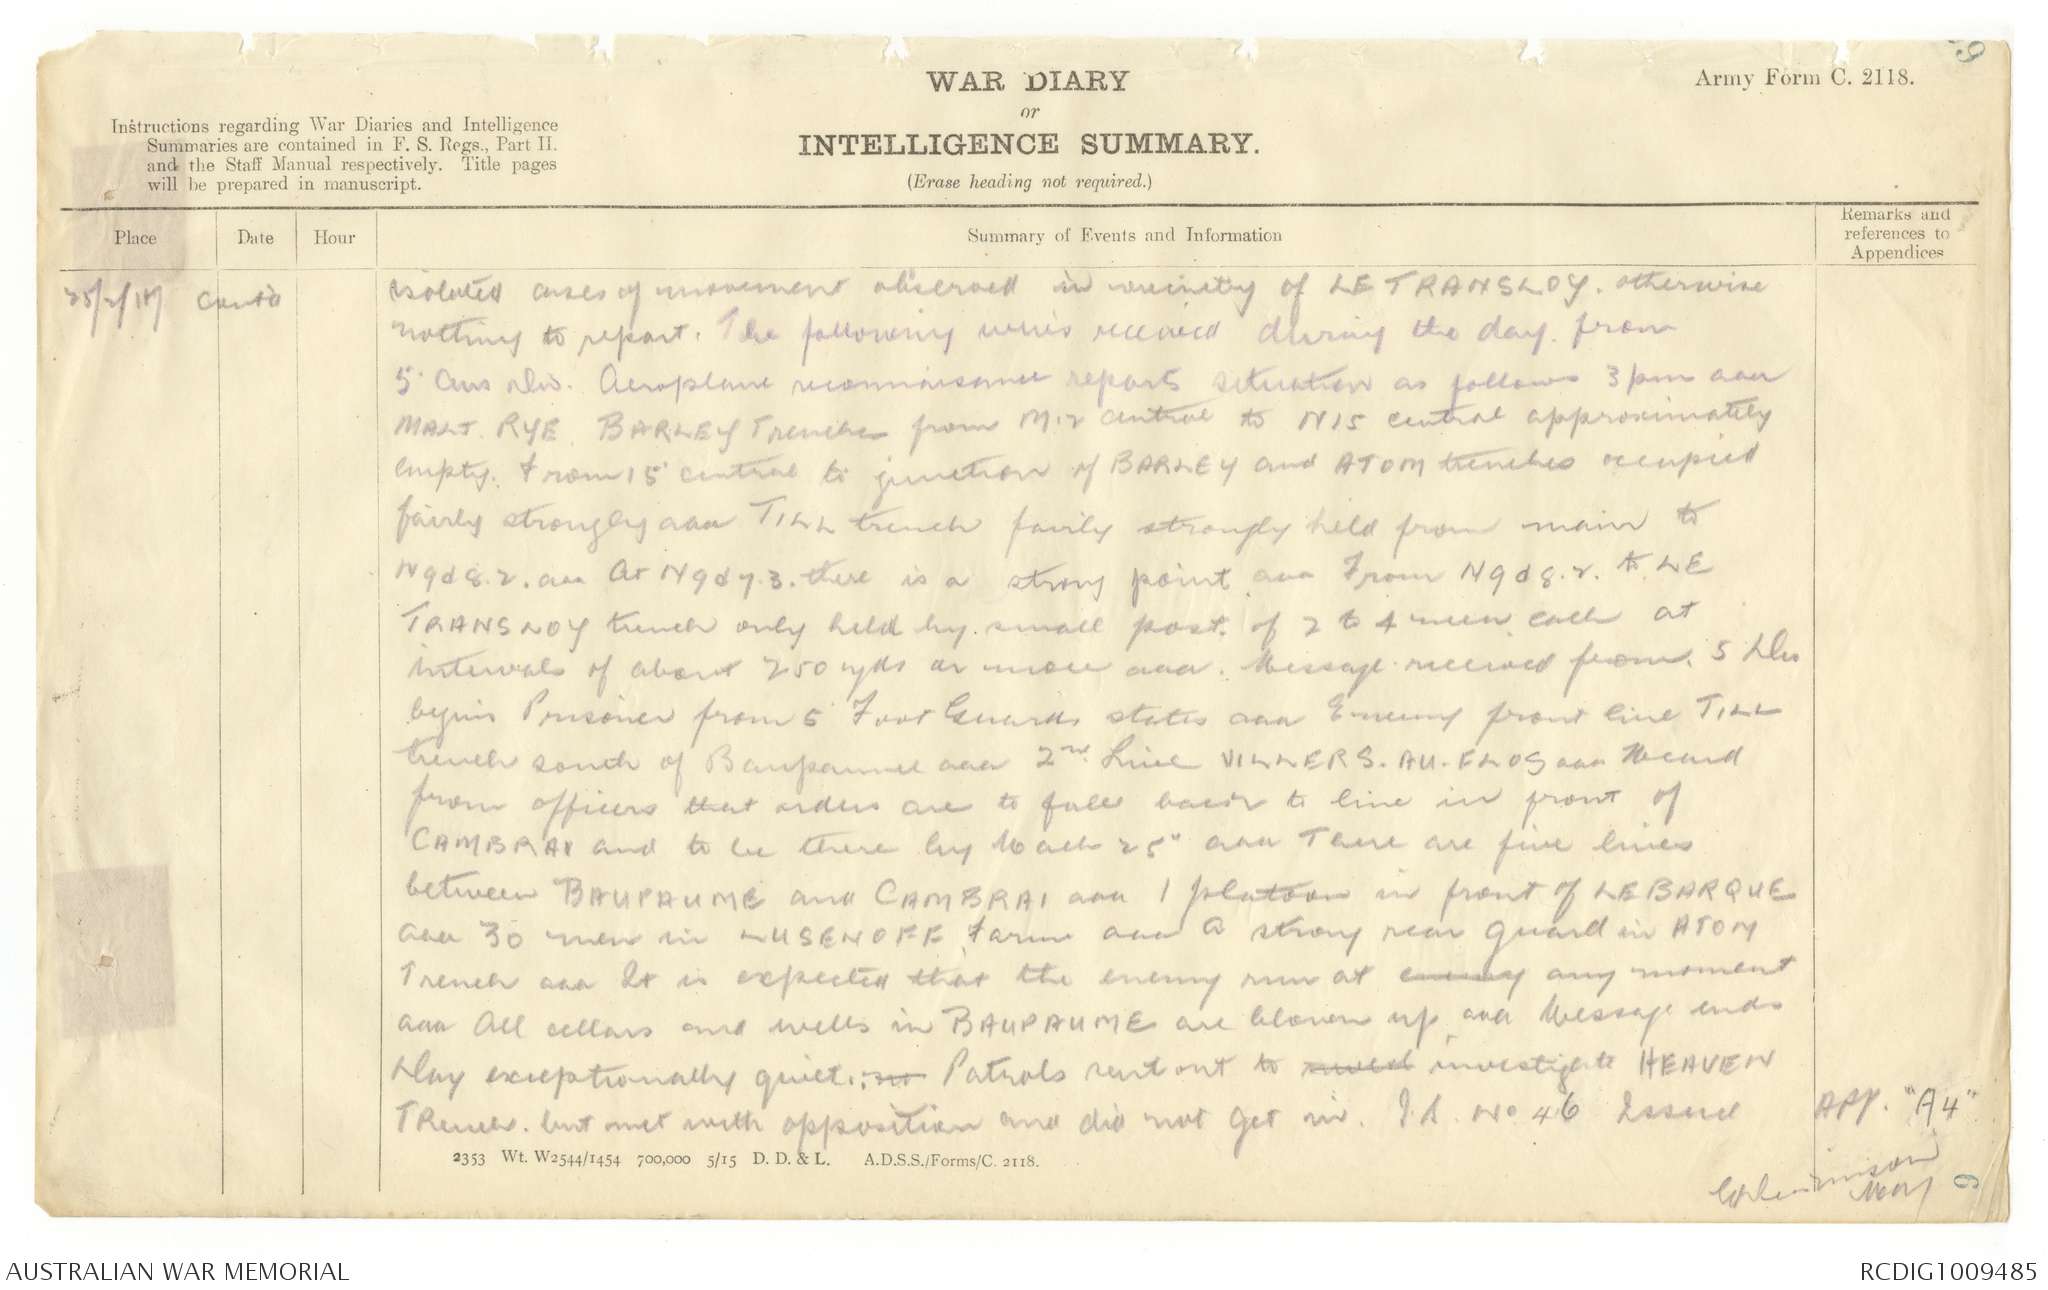 WAR DIARY
or
INTELLIGENCE SUMMARY.
(Erase heading not required.)
Army Form C. 2118.
Instructions regarding War Diaries and Intelligence
Summaries are contained in F. S. Regs., Part II.
and the Staff Manual respectively. Title pages
will be prepared in manuscript.
Place
Date
Hour
Summary of Events and Information
Remarks and
references to
Appendices
25/2/17 Cont'd
isolated cases of movement observed in vicinity of LE TRANSLOY. otherwise
nothing to report. The following wires received during the day from
5 Aus Div. Aeroplane reconnaissance reports situation as follows 3 pm aaa
MALT. RYE. BARLEY Trenches from M.2 central to N15 central approximately
empty. From 15 central to junction of BARLEY and ATOM trenches occupied
fairly strongly aaa TILL trench fairly strongly held from main to
N9d8.2. aaa At N9d7.3. there is a strong point aaa From N9d8.2. to LE
TRANSLOY trench only held by small post. of 2 to 4 men each at
intervals of about 250 yds or more aaa. Message received from. 5 Div
begins Prisoner from 5 Foot Guards states aaa Enemy front line TILL
trench south of Baupaume aaa 2nd Line VILLERS. AU. FLOS aaa Heard
from officers that orders are to fall back to line in front of
CAMBRAI and to be there by March 25" aaa There are five lines
between BAUPAUME and CAMBRAI aaa 1 platoon in front of LE BARQUE
aaa 30 men in LUSENOFF Farm aaa A strong rear guard in ATOM
Trench aaa It is expected that the enemy run at enemy any moment
aaa All cellars and wells in BAUPAUME are blown up aaa Message ends
Day exceptionally quiet. Patrols sent out to investigate HEAVEN
TRench. but met with opposition and did not get in. I.S. No 46 Issued
APP. "A4"
2353 Wt. W2544/1454 700,000 5/15 D. D. & L. A.D.S.S./Forms/C. 2118.
Major
9
AUSTRALIAN WAR MEMORIAL
RCDIG1009485